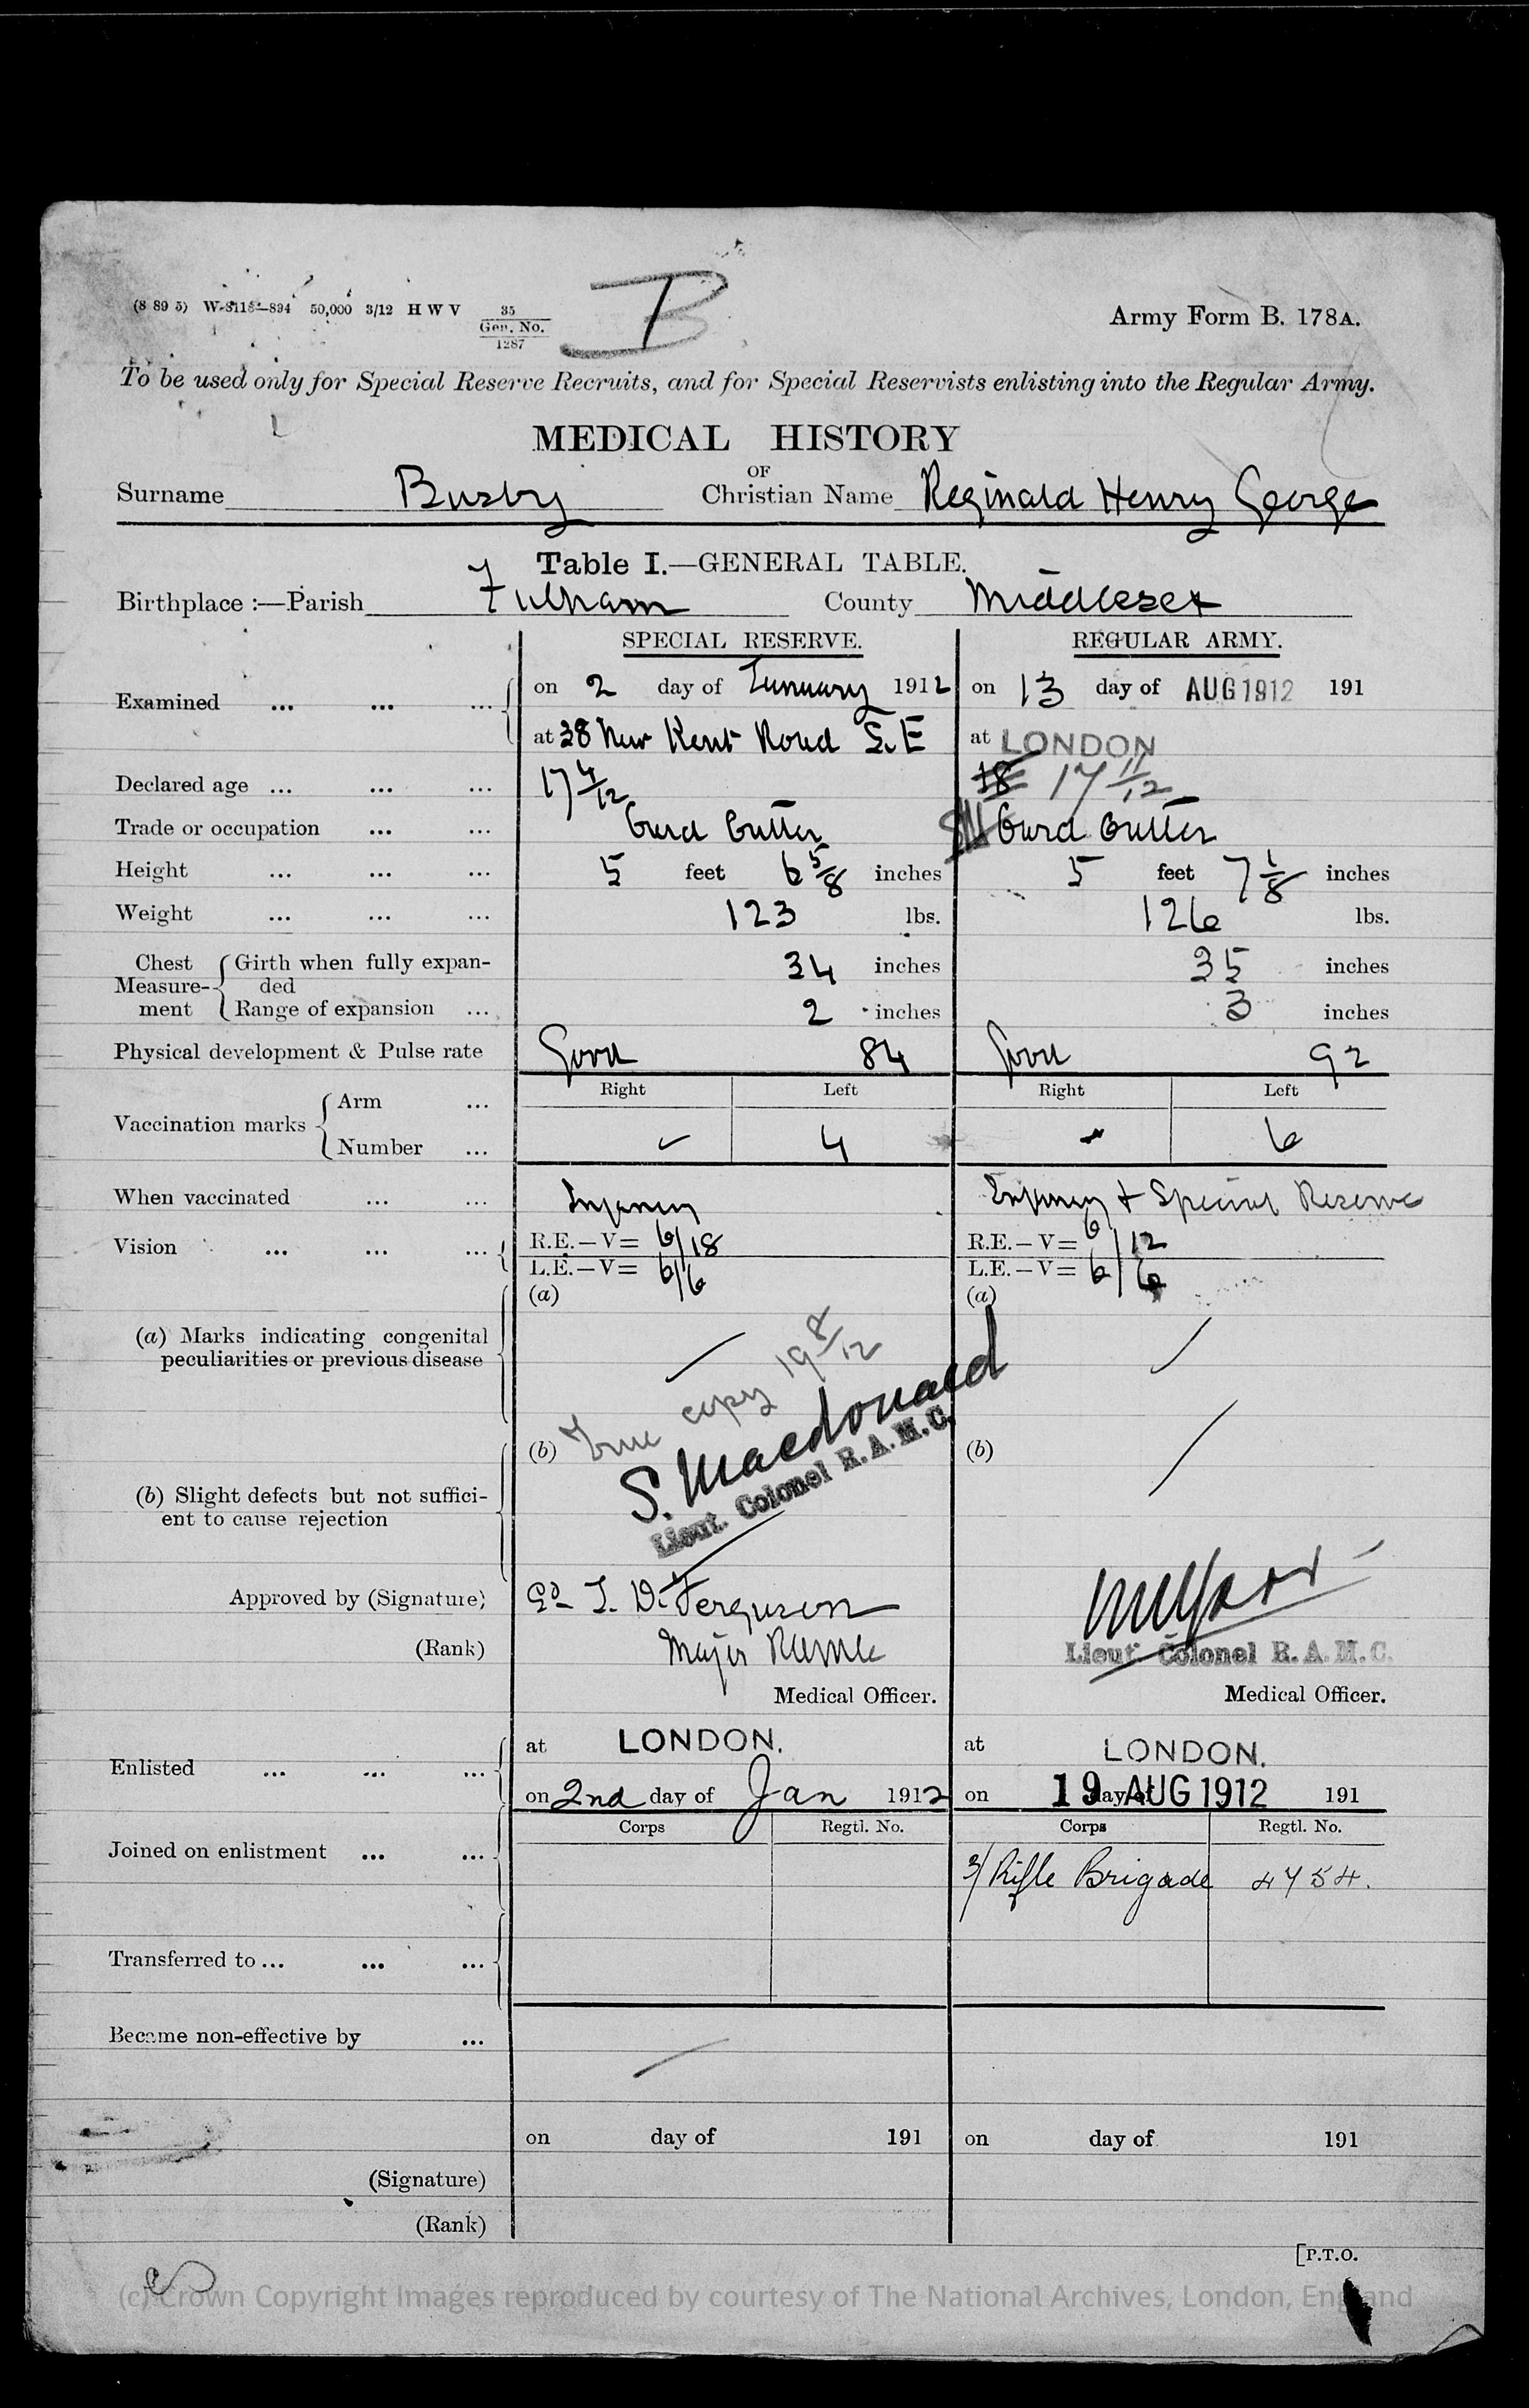 (8 89 5) W-8118-894 50,000 3/12 H W V 35
Gen. No.
1287
B
Army Form B. 178A.
To be used only for Special Reserve Recruits, and for Special Reservists enlisting into the Regular Army.
MEDICAL HISTORY
OF
Surname Busby Christian Name Reginald Henry George
Table I.—GENERAL TABLE.
Birthplace :—Parish Fulham County Middlesex
SPECIAL RESERVE. REGULAR ARMY.
Examined ... ... ... on 2 day of January 1912 on 13 day of AUG 1912 191
at 38 New Kent Road S.E at LONDON
Declared age ... ... ... 17 4/12 18 17 11/12
Trade or occupation ... ... Card Cutter Card Cutter
Height ... ... ... 5 feet 6 5/8 inches 5 feet 7 1/8 inches
Weight ... ... ... 123 lbs. 126 lbs.
Chest Measurement Girth when fully expanded 34 inches 35 inches
Range of expansion ... 2 inches 3 inches
Physical development & Pulse rate Good 84 Good 92
Right Left Right Left
Vaccination marks Arm ...
Number ... 4 6
When vaccinated ... ... Infancy Infancy & Special Reserve
Vision ... ... ... R.E.—V= 6/18 R.E.—V= 6/12
L.E.—V= 6/6 L.E.—V= 6/6
(a) (a)
(a) Marks indicating congenital
peculiarities or previous disease
True copy 19 8/12
S. Macdonald
Lieut. Colonel R.A.M.C.
(b) (b)
(b) Slight defects but not suffici-
ent to cause rejection
Approved by (Signature) Gd. T. D. Ferguson
(Rank) Major RAMC Lieut. Colonel R.A.M.C.
Medical Officer. Medical Officer.
Enlisted ... ... ... at LONDON. at LONDON.
on 2nd day of Jan 1912 on 19 day of AUG 1912 191
Corps Regtl. No. Corps Regtl. No.
Joined on enlistment ... ... 3/ Rifle Brigade 4754.
Transferred to ... ... ...
Became non-effective by ...
on day of 191 on day of 191
(Signature)
(Rank)
[P.T.O.
(c) Crown Copyright Images reproduced by courtesy of The National Archives, London, England